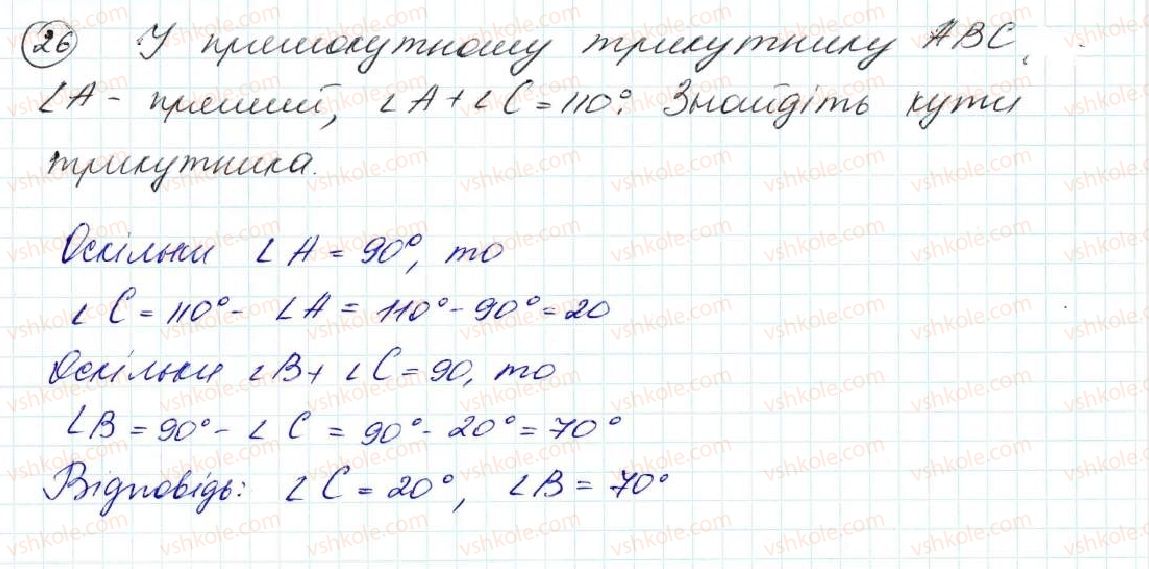 26 У прямокутному трикутнику ABC,
∠A - прямий, ∠A + ∠C = 110°. Знайдіть кути
трикутника.
Оскільки ∠A = 90°, то
∠C = 110° - ∠A = 110° - 90° = 20
Оскільки ∠B + ∠C = 90, то
∠B = 90° - ∠C = 90° - 20° = 70°
Відповідь: ∠C = 20°, ∠B = 70°